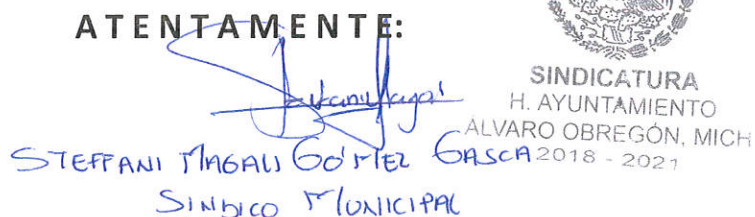 ATENTAMENTE:
SINDICATURA
H. AYUNTAMIENTO
ALVARO OBREGÓN, MICH
2018 - 2021
STEFFANI MAGALI GÓMEZ GASCA
SINDICO MUNICIPAL